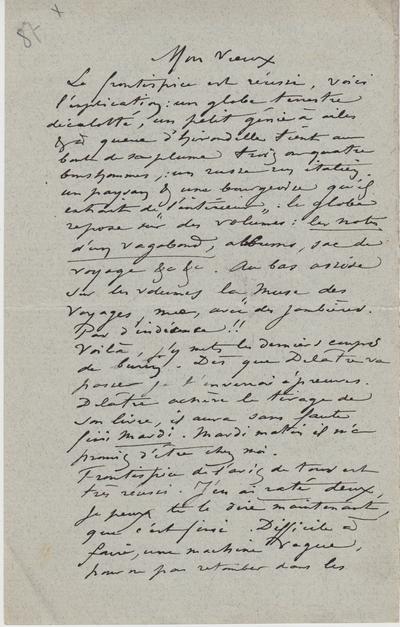 87 x
Mon vieux
Le frontispice est réussi, voici
l'explication : un globe terrestre
décalotté, un petit génie à ailes
& à queue d'hirondelle tient au
bout de sa plume trois ou quatre
bonshommes, : un russe un italien
un paysan & une bourgeoise qu'il
extrait de l'intérieur. le globe
repose sur des volumes : les notes
d'un vagabond, albums, sac de
voyage &c &c. Au bas assise
sur les volumes la Muse des
voyages, nue, avec des jambières.
Pas d'indécence !!
Voilà, j'y mets les derniers coups
de burin. Dès que Delâtre va
passer je t'enverrai épreuves.
Delâtre achève le tirage de
son livre, il aura sans faute
fini Mardi. Mardi matin il m'a
promis d'être chez moi.
Frontispice de l'avis de tous est
très réussi. J'en ai raté deux,
je peux te le dire maintenant,
que c'est fini. Difficile à
faire, une machine vague,
pour ne pas retomber dans les